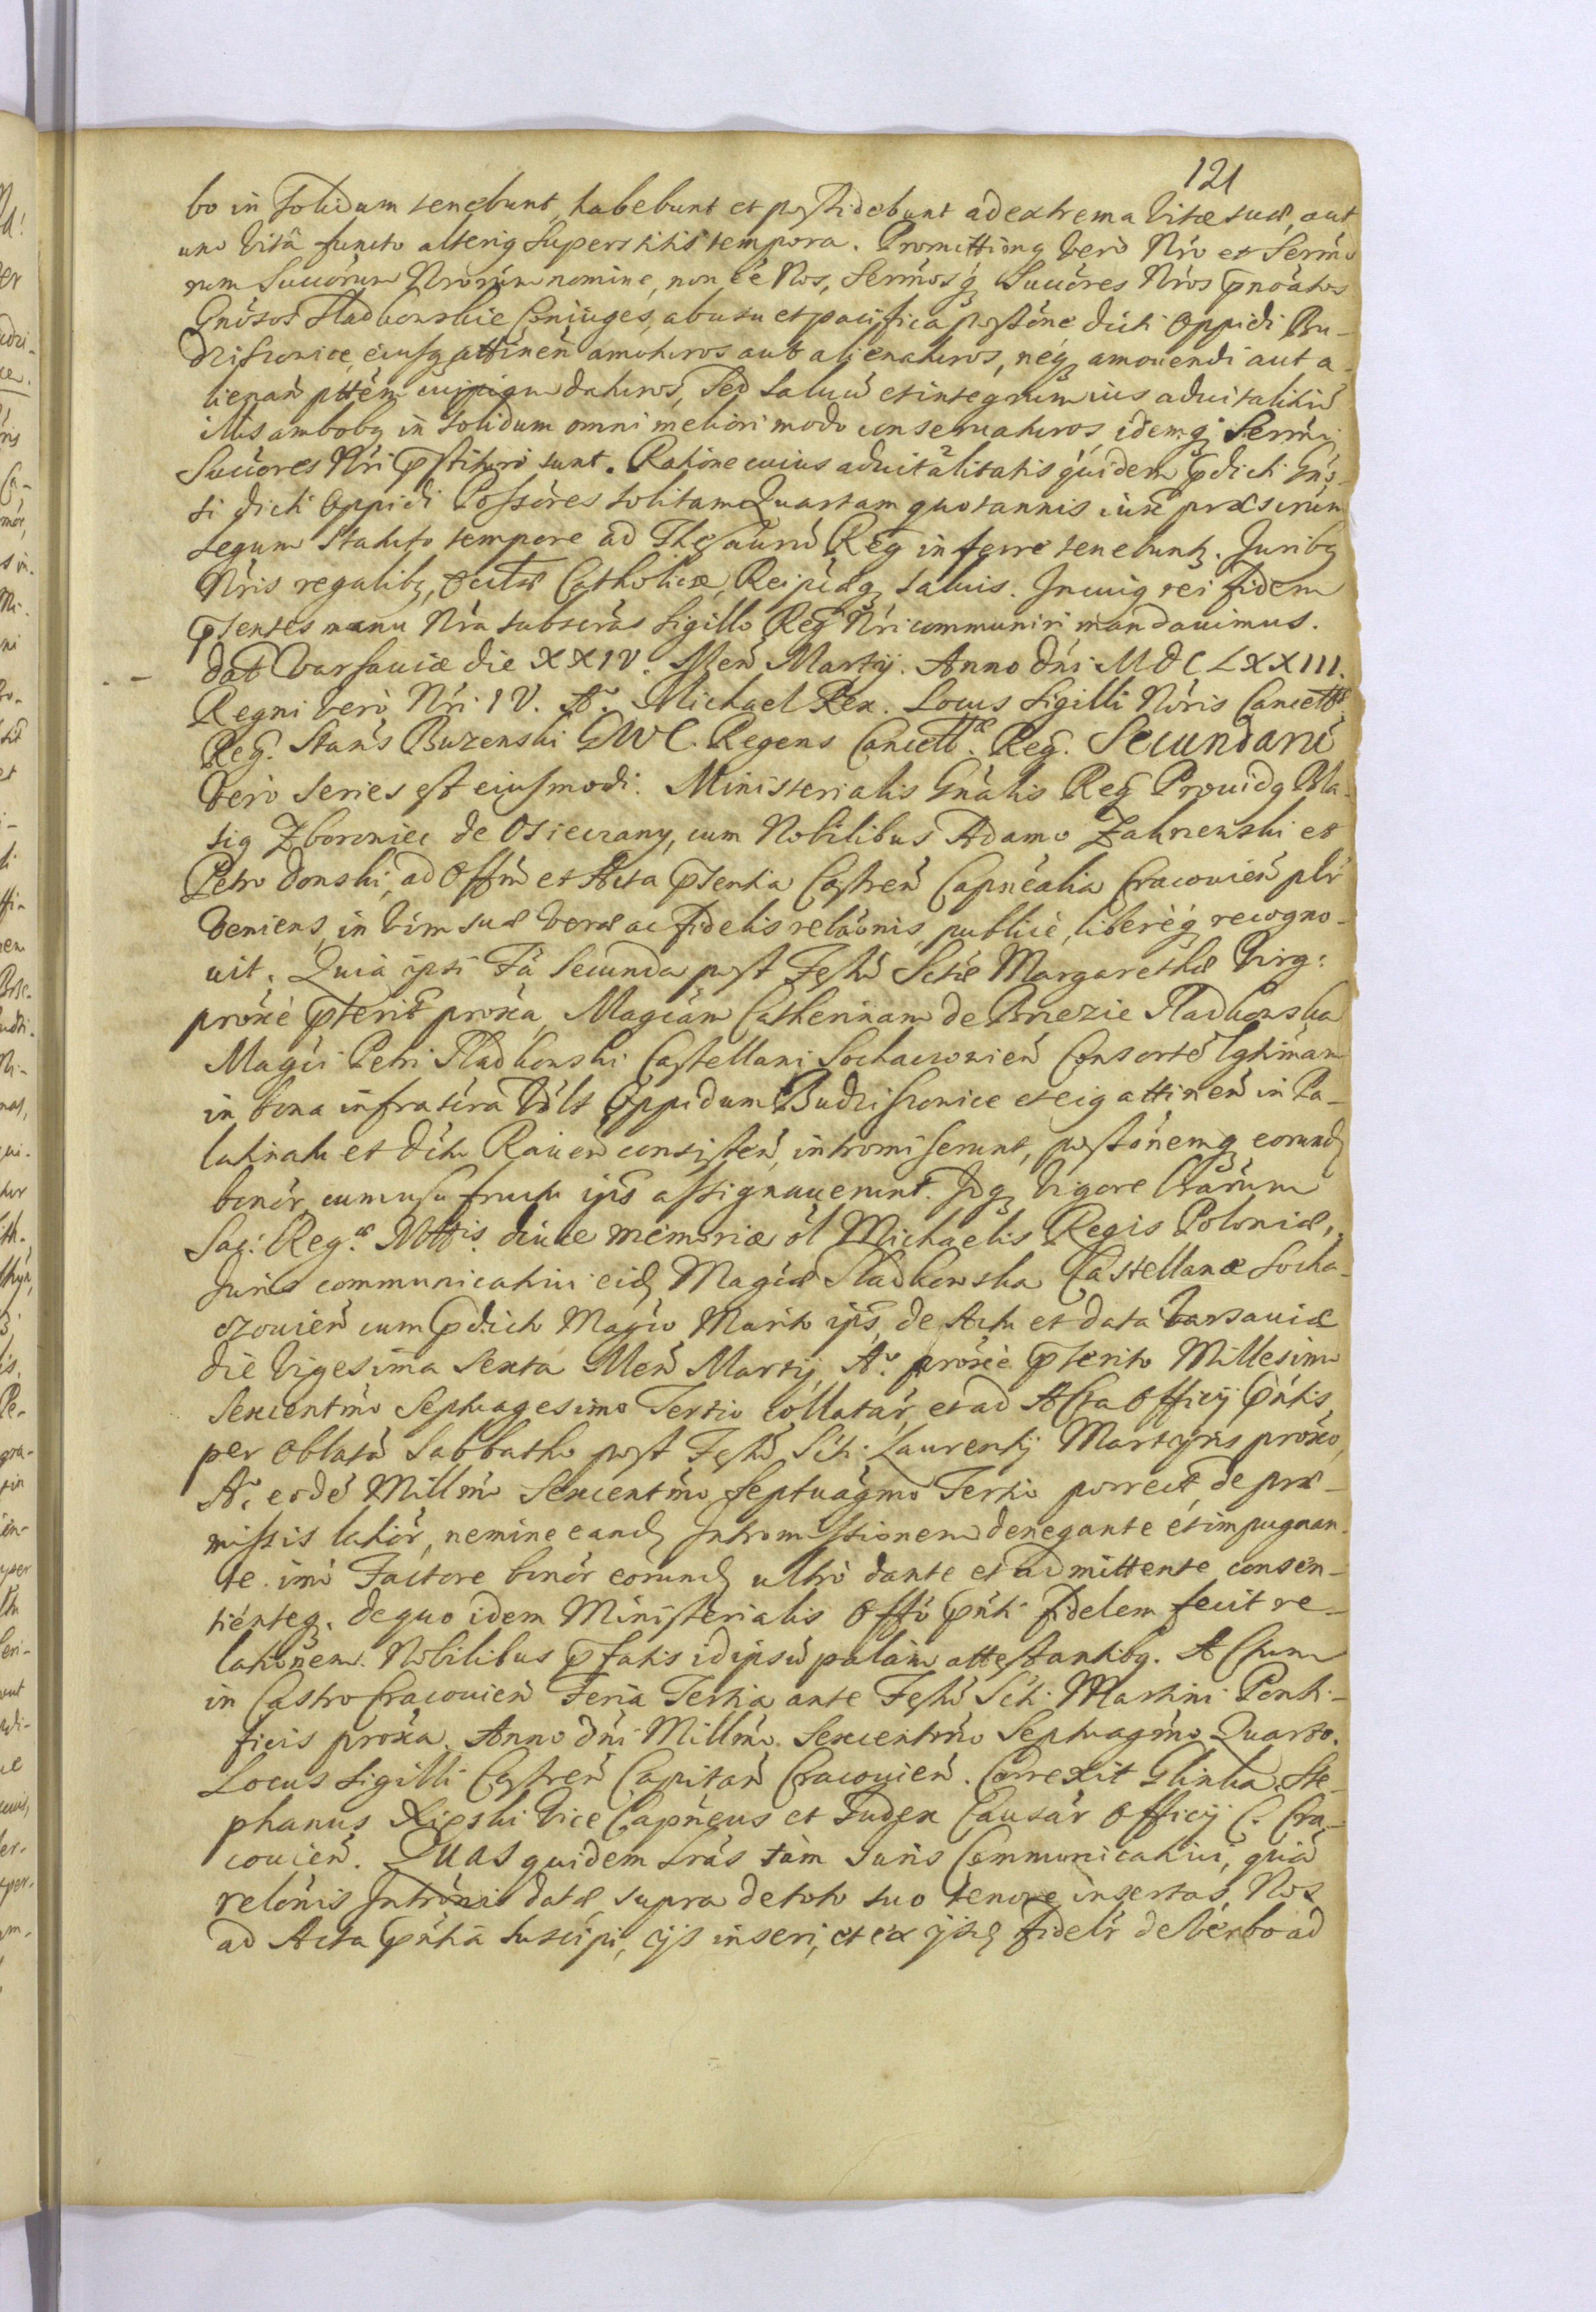 121
bo in solidum tenebunt, habebunt et possidebunt ad extrema Vitæ suæ, aut
uno Vitâ functo alterig Superstitis tempora. Promittimg verò Nro et Sermo
rum Succōrum Nrōrum nomine, non ēe Nos, Sermosq Succōres Nros pnoātos
Gnōsos Sladkowskie Coniuges, ab usu et pacifica possōne dicti Oppidi Bu-
dziszowice, eiusq attinen amoturos aut alienaturos, neq amouendi aut a-
lienan pttem cuipiam daturos, Sed Saluū et integrum ius aduitalitiū
illis ambobg in solidum omni meliori modo conseruaturos, idemq Sermi
Succōres Nri pstituri sunt. Ratione cuius aduitalitatis quidem pdicti Gnō-
si dicti Oppidi Possōres solitam Quartam quotannis iuxē præscrium
Legum Statuto tempore ad Thesaurū Reg inferre tenebuntr. Juribg
Nris regalibg, Ecclæ Catholicæ, Reipcæq saluis. In cuig rei fidem
pSentes manu Nra subscras sigillo Reg Nri communiri mandauimus.
dat Varsauiæ die XXIV. Men Martij. Anno dni MDCLXXIII.
Regni verò Nri IV. Ao. Michael Rex. Locus Sigilli Nōris Cancellæ
Reg. Stanis Buzenski GWC. Regens Cancellæ Reg. Secundarū
verò Series est eiusmodi. Ministerialis Gnālis Reg Prouidg Bla-
sig Zboroniec de Osieczany, cum Nobilibus Adamo Zakrzewski et
Petro Donski, ad Offm et Acta pSentia Castren Capnēalia Cracouien plr
veniens, in vim suæ veræ ac fidelis relaōnis, publicè, liberèq recogno-
uit. Quia ipse Fā Secunda post Festū Sctæ Margarethæ Virg:
proxè pterit proxa, Magcam Catherinam de Brzezie Sladkowska
Magci Petri Sladkowski Castellani Sochaczowien Consortē Lgtimam
in bona infrascra Vdlt Oppidum Budziszowice et eig attinen in Pa-
latinatu et Dctu Rauien consisten, intromiserunt, possōnemq eorund
bonōr, cum usufructu ips assignauerunt. Idq vigore Lrārum
Sac: Regæ Mttis. diuæ memoriæ ol Michaelis Regis Poloniæ,
Juris communicatiui eid Magcæ Sladkowska Castellanæ Socha-
czouien cum pdicto Magco Marito ips, de Actu et data Varsauiæ
die Vigesima Sexta Men Martij, Ao. proxè pterito Millesimo
Sexcentmo Septuagesimo Tertio collatār, et ad Acta Officij pntis
per Oblatā Sabbatho post Festū Scti Laurentij Martyris proxo,
Ao, eodē Millmo Sexcentmo Septuagmo Tertio porrect, de præ-
missis latiōr, nemine eand Intromissionem denegante et impugnan-
te. imò Factore bonōr eorund ultrò dante et admittente, consen-
tienteq. De quo idem Ministerialis Offō pnti fidelem fecit re-
lationem. Nobilibus pfatis id ipsū palàm attestantibg. Actum
in Castro Cracouien Feria Tertia ante Festū Scti Martini Ponti-
ficis proxa. Anno dni Millmo. Sexcentmo Septuagmo Quarto.
Locus Sigilli Castren Capitan Cracouien. Correxit Glinka. Ste-
phanus Vice Capneus et Judex Causār Officij C. Cra-
couien. Quas quidem Lras tàm Juris Communicatiui, quā
relōnis datæ, supra de toto suo tenore insertas, Nos
ad Acta pntia suscipi, ijs inseri, et ex ijsd fidelr de Verbo ad